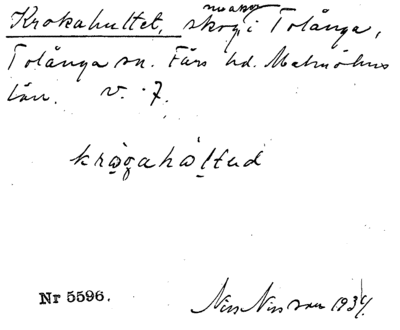 Krokahultet, skog i Tolånga,
Tolånga sn. Färs hd. Malmöhus
län. v. 7.
kràgahàltud
Nr 5596.
Nils Nilsson 1934.